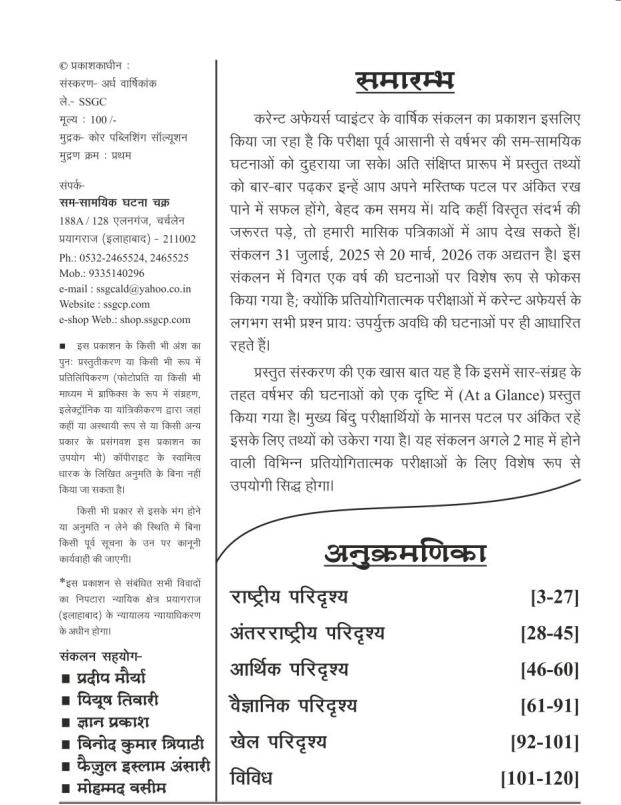 © प्रकाशकाधीन :
संस्करण- अर्ध वार्षिकांक
ले.- SSGC
मूल्य : 100 /-
मुद्रक- कोर पब्लिशिंग सॉल्यूशन
मुद्रण क्रम : प्रथम
संपर्क-
सम-सामयिक घटना चक्र
188A / 128 एलनगंज, चर्चलेन
प्रयागराज (इलाहाबाद) - 211002
Ph.: 0532-2465524, 2465525
Mob.: 9335140296
e-mail : ssgcald@yahoo.co.in
Website : ssgcp.com
e-shop Web.: shop.ssgcp.com
■ इस प्रकाशन के किसी भी अंश का
पुनः प्रस्तुतीकरण या किसी भी रूप में
प्रतिलिपिकरण (फोटोप्रति या किसी भी
माध्यम में ग्राफिक्स के रूप में संग्रहण,
इलेक्ट्रॉनिक या यांत्रिकीकरण द्वारा जहां
कहीं या अस्थायी रूप से या किसी अन्य
प्रकार के प्रसंगवश इस प्रकाशन का
उपयोग भी) कॉपीराइट के स्वामित्व
धारक के लिखित अनुमति के बिना नहीं
किया जा सकता है।
किसी भी प्रकार से इसके भंग होने
या अनुमति न लेने की स्थिति में बिना
किसी पूर्व सूचना के उन पर कानूनी
कार्यवाही की जाएगी।
*इस प्रकाशन से संबंधित सभी विवादों
का निपटारा न्यायिक क्षेत्र प्रयागराज
(इलाहाबाद) के न्यायालय न्यायाधिकरण
के अधीन होगा।
संकलन सहयोग-
■ प्रदीप मौर्या
■ पियूष तिवारी
■ ज्ञान प्रकाश
■ विनोद कुमार त्रिपाठी
■ फैजुल इस्लाम अंसारी
■ मोहम्मद वसीम
समारम्भ
करेन्ट अफेयर्स प्वाइंटर के वार्षिक संकलन का प्रकाशन इसलिए
किया जा रहा है कि परीक्षा पूर्व आसानी से वर्षभर की सम-सामयिक
घटनाओं को दुहराया जा सके। अति संक्षिप्त प्रारूप में प्रस्तुत तथ्यों
को बार-बार पढ़कर इन्हें आप अपने मस्तिष्क पटल पर अंकित रख
पाने में सफल होंगे, बेहद कम समय में। यदि कहीं विस्तृत संदर्भ की
जरूरत पड़े, तो हमारी मासिक पत्रिकाओं में आप देख सकते हैं।
संकलन 31 जुलाई, 2025 से 20 मार्च, 2026 तक अद्यतन है। इस
संकलन में विगत एक वर्ष की घटनाओं पर विशेष रूप से फोकस
किया गया है; क्योंकि प्रतियोगितात्मक परीक्षाओं में करेन्ट अफेयर्स के
लगभग सभी प्रश्न प्रायः उपर्युक्त अवधि की घटनाओं पर ही आधारित
रहते हैं।
प्रस्तुत संस्करण की एक खास बात यह है कि इसमें सार-संग्रह के
तहत वर्षभर की घटनाओं को एक दृष्टि में (At a Glance) प्रस्तुत
किया गया है। मुख्य बिंदु परीक्षार्थियों के मानस पटल पर अंकित रहें
इसके लिए तथ्यों को उकेरा गया है। यह संकलन अगले 2 माह में होने
वाली विभिन्न प्रतियोगितात्मक परीक्षाओं के लिए विशेष रूप से
उपयोगी सिद्ध होगा।
अनुक्रमणिका
राष्ट्रीय परिदृश्य [3-27]
अंतरराष्ट्रीय परिदृश्य [28-45]
आर्थिक परिदृश्य [46-60]
वैज्ञानिक परिदृश्य [61-91]
खेल परिदृश्य [92-101]
विविध [101-120]